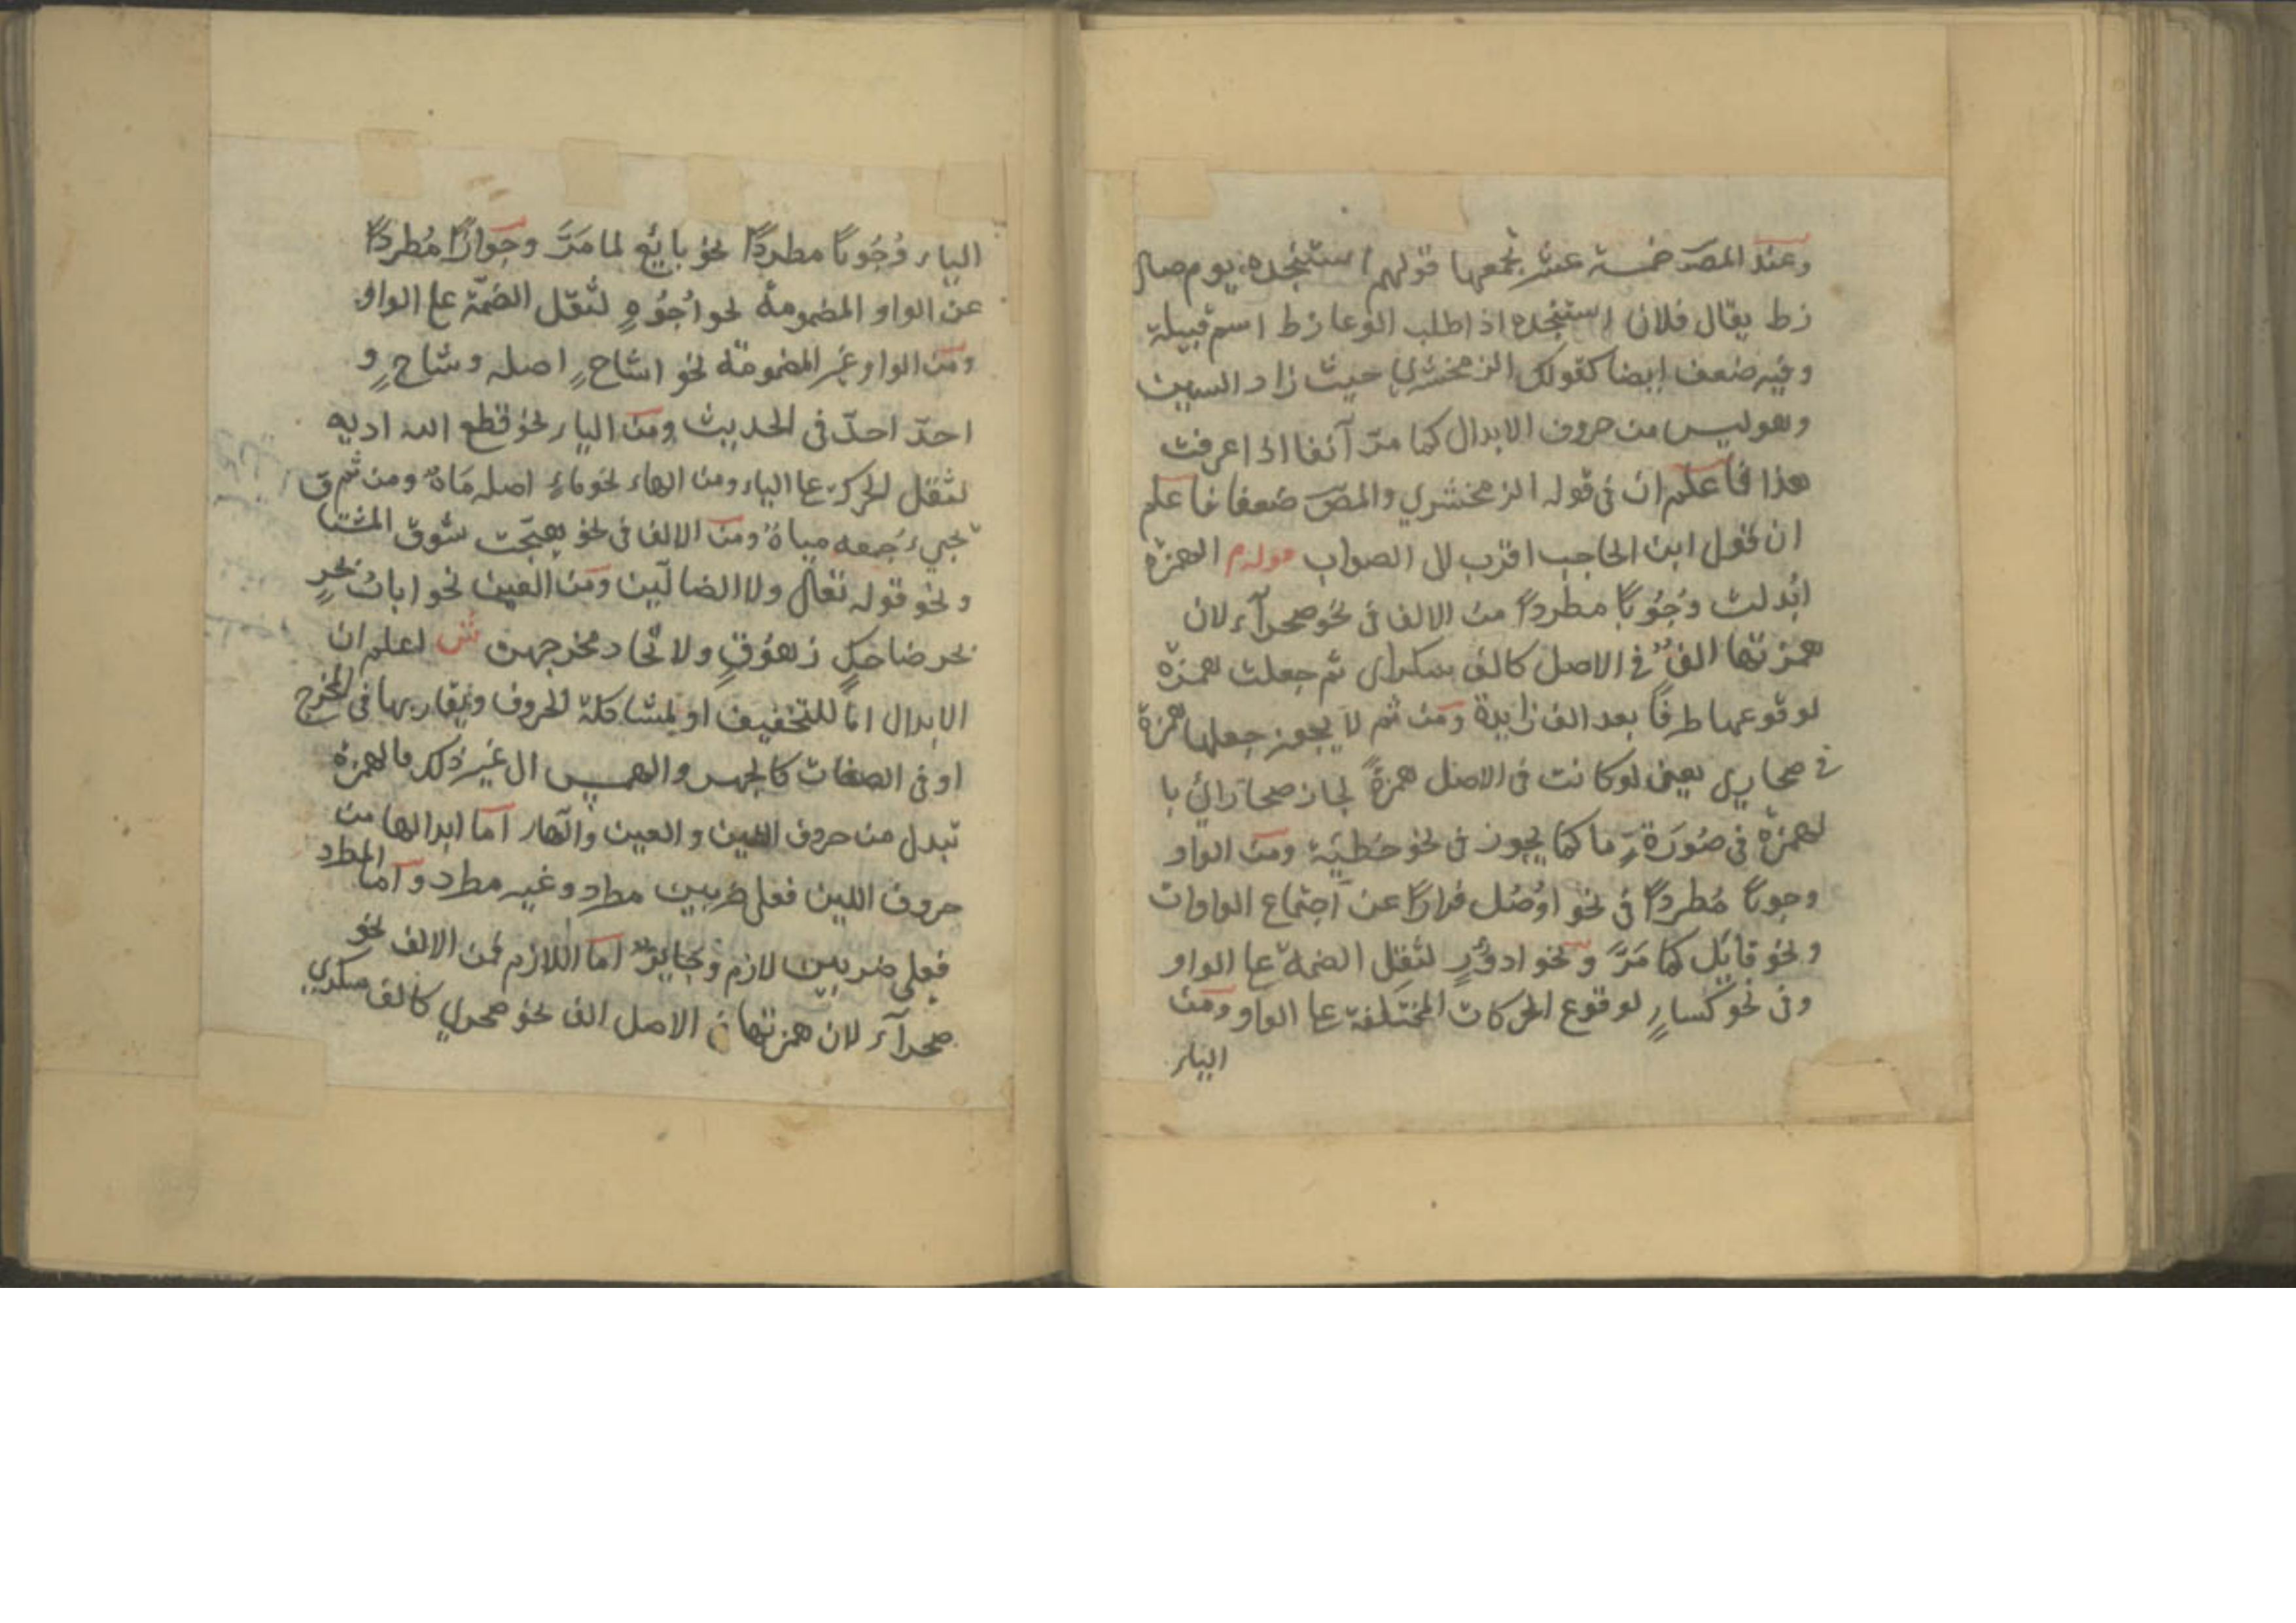 وعند المصَ خمسة عشر يجمعها قولهم استنجده يوم صال
زط يقال فلان استنجده اذا طلب الوعا زط اسم قبيلة
وفيه ضعف ايضا كقولك الزمخشري حيث زاد السين
وهو ليس من حروف الابدال كما مرّ آنفا اذا عرفت
هذا فاعلم ان فى قوله الزمخشري والمصَ ضعفا فاعلم
ان قول ابن الحاجب اقرب الى الصواب قوله م الهمزة
ابُدلت وجُوبًا مطردًا من الالف فى نحو صحرآء لان
همزتها الفٌ فى الاصل كالف سكرى ثم جعلت همزة
لوقوعها طرفًا بعد الف زايدة ومن ثم لا يجوز جعلها همزة
فى صحاري يعنى لو كانت فى الاصل همزةً لجاز صحارائ با
لهمزة فى صُورَةٍ ما كما يجوز فى نحو خطيَة ومن الواو
وجوبًا مُطردًا فى نحو اوُصُل فرارًا عن اجتماع الواوات
ونحو قايَل كما مَرَّ ونحو ادوُرٍ لثقل الضمة عا الواو
وفى نحو كساءٍ لوقوع الحركات المختلفة عا الواو ومن
الياء
الياء وُجُوبًا مطردًا نحو بايَع لما مَرَّ وجَوازًا مُطردًا
عن الواو المضمومة نحو اُجُوُهٍ لثقل الضمّة عا الواو
ومن الواو غير المضمومة نحو اشاح اصله وشاحٍ و
احدّ احدّ فى الحديث ومن الياء نحو قطع الله اديه
لثقل الحركة عا الياء ومن الهاء نحو ماءٍ اصله مَاهٌ ومن ثم ق
تجيء جمعه مياهٌ ومن الالف فى نحو هيّجت شوق المشتا
ونحو قوله تعالى ولا الضالّين ومن العين نحو ابابُ بحرٍ
بحر ضاحكٍ زهوُقٍ ولاتّحاد مخرجهن ش اعلم ان
الابدال امّا للتخفيف او لمشاكلة الحروف وتقاربها فى المخرج
او فى الصفات كالجهر والهمس الى غير ذلك فالهمزة
تبدل من حروف اللين والعين والهاء امّا ابدالها من
حروف اللين فعلى ضربين مطرد وغير مطرد وامّا المطرد
فعلى ضربين لازم وجايزٌ امّا اللازم فمن الالف نحو
صحرآء لان همزتها فى الاصل الف نحو صحرى كالف سكري